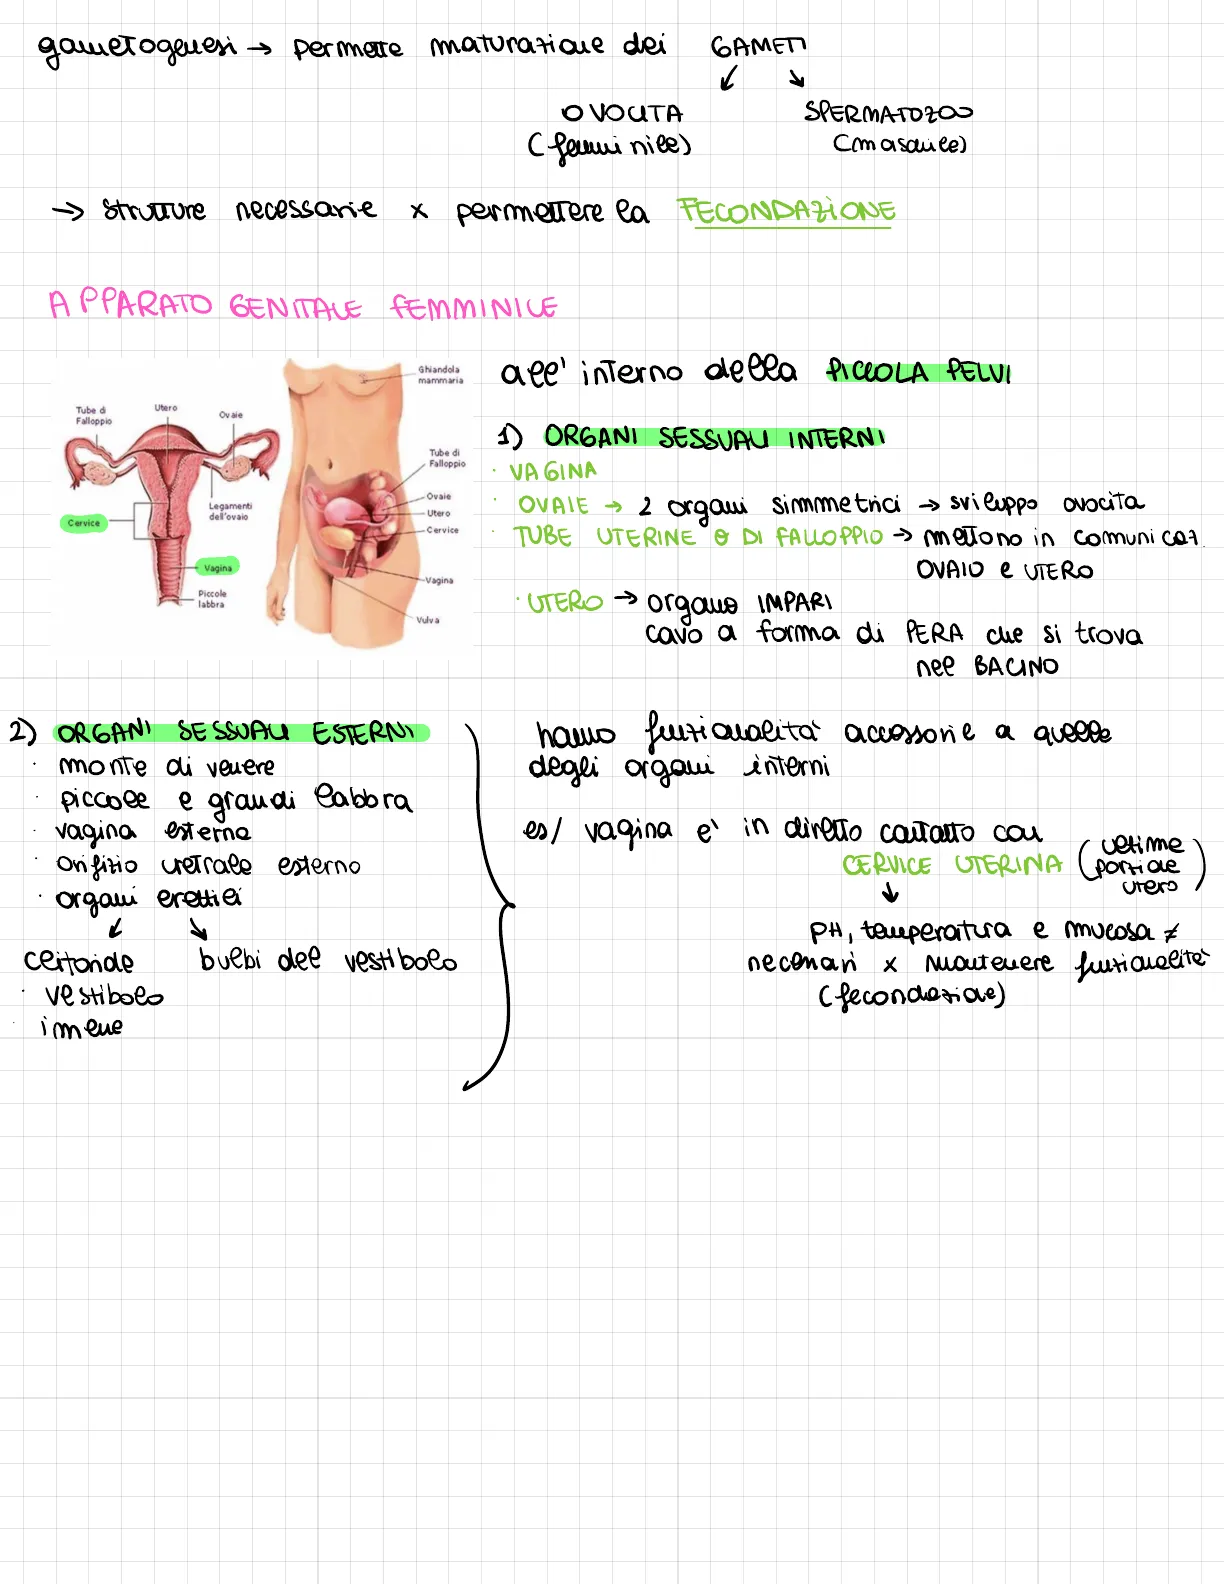 gametogenesi → permette maturazione dei GAMETI
↙ ↘
OVOCITA SPERMATOZOO
(femminile) (maschile)
→ strutture necessarie x permettere la FECONDAZIONE
APPARATO GENITALE FEMMINILE
Tube di
Falloppio
Utero
Ovaie
Legamenti
dell'ovaio
Cervice
Vagina
Piccole
labbra
Ghiandola
mammaria
Tube di
Falloppio
Ovaie
Utero
Cervice
Vagina
Vulva
all'interno della PICCOLA PELVI
1) ORGANI SESSUALI INTERNI
· VAGINA
· OVAIE → 2 organi simmetrici → sviluppo ovocita
· TUBE UTERINE o DI FALLOPPIO → mettono in comunicaz.
OVAIO e UTERO
· UTERO → organo IMPARI
cavo a forma di PERA che si trova
nel BACINO
2) ORGANI SESSUALI ESTERNI
· monte di venere
· piccole e grandi labbra
· vagina esterna
· orifizio uretrale esterno
· organi erettili
↙ ↘
clitoride bulbi del vestibolo
· vestibolo
· imene
hanno funzionalità accessorie a quelle
degli organi interni
es/ vagina e' in diretto contatto con
CERVICE UTERINA (ultime porzione utero)
↓
PH, temperatura e mucosa ≠
necessari x mantenere funzionalità
(fecondazione)